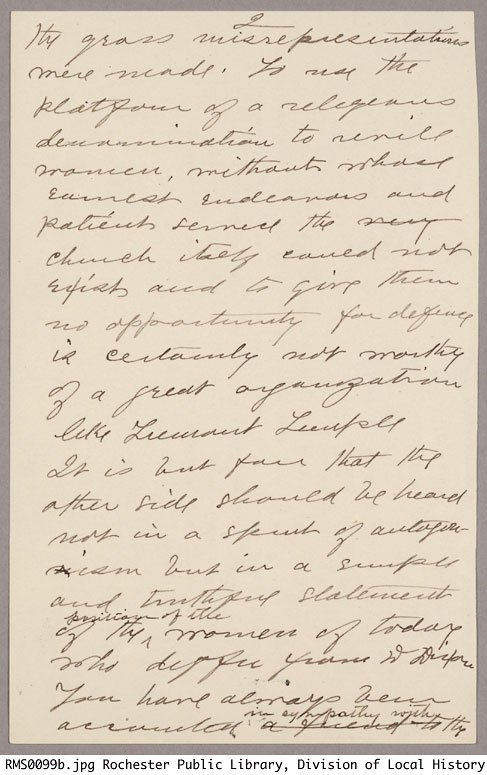 2
the gross misrepresentations
were made. To use the
platform of a religeous
denomination to revile
women, without whose
earnest endeavors and
patient service the very
church itself could not
exist and to give them
no opportunity for defence
is certainly not worthy
of a great organization
like Tremont Temple
It is but fair that the
other side should be heard
not in a spirit of antagon-
ism but in a simple
and truthful statement
position of the
of the women of today
who differ from Dr Dixon
You have always been
in sympathy with
accounted a friend to the
RMS0099b.jpg Rochester Public Library, Division of Local History